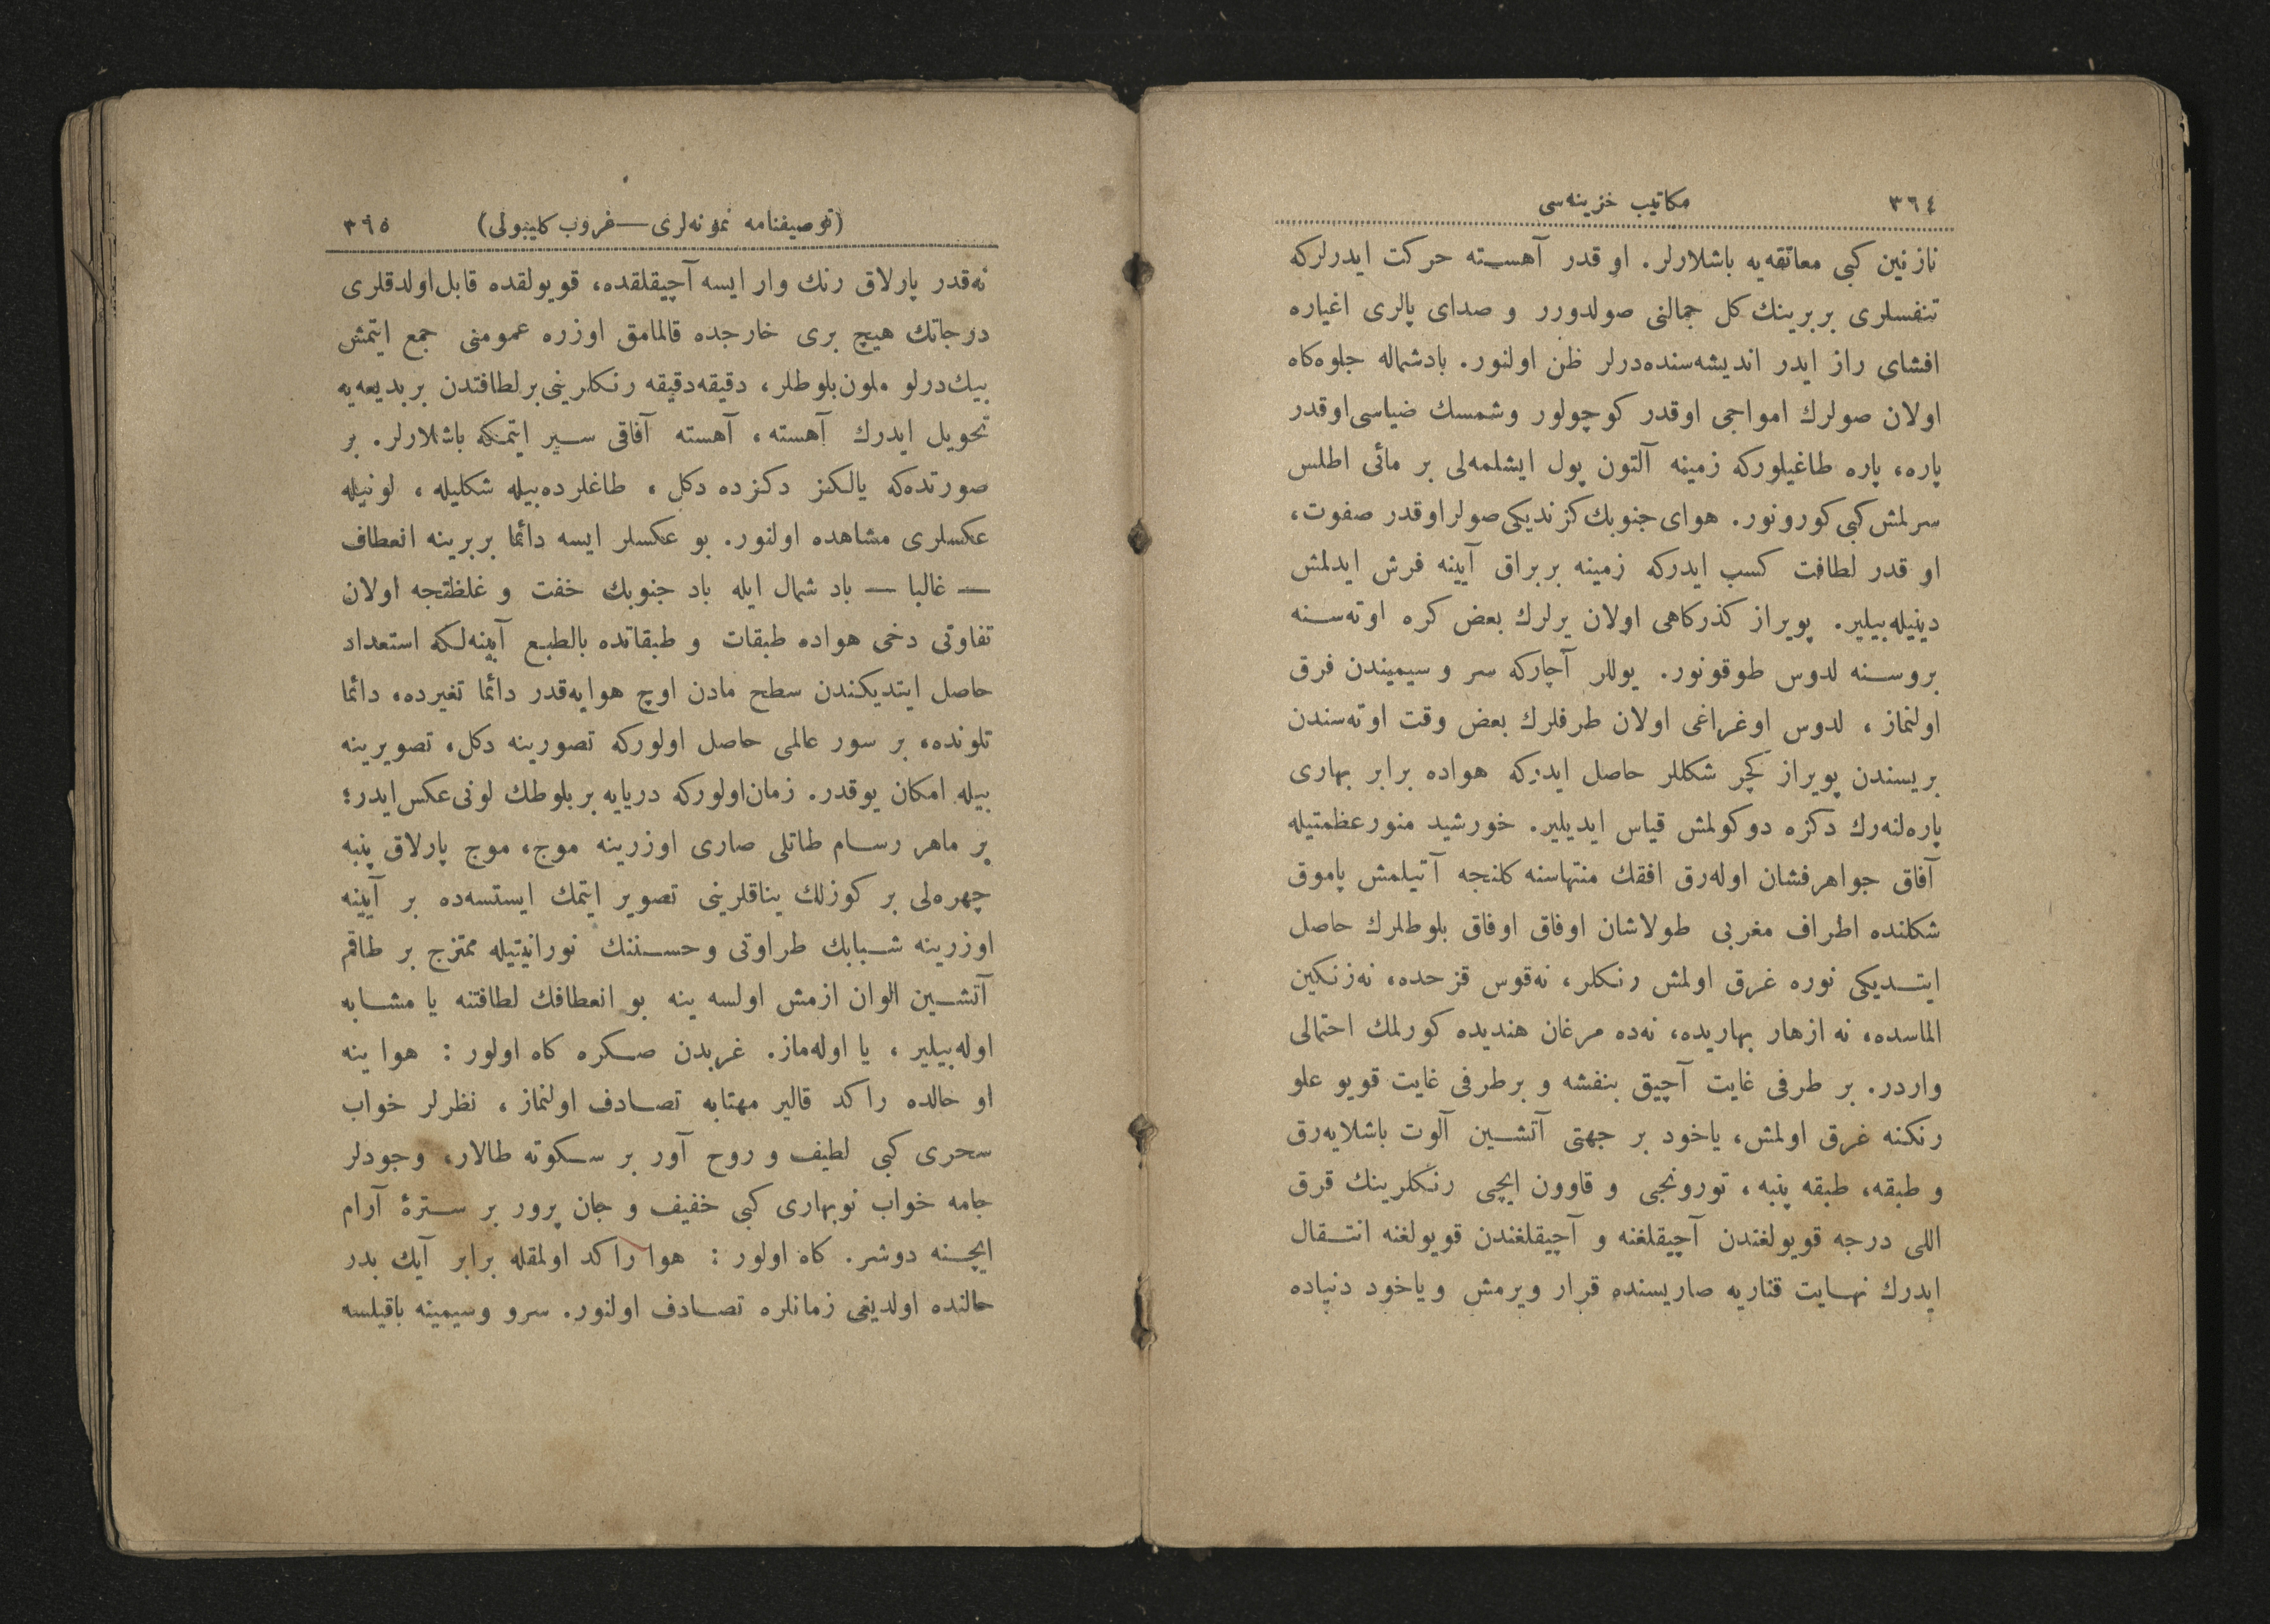 ٣٦٤ مكاتيب خزينه‌سی
نازنين كبی معانقه‌يه باشلارلر. او قدر آهسته حركت ايدرلركه
تنفسلری بربرينك كل جمالنی صولدورر و صدای پالری اغياره
افشای راز ايدر انديشه‌سنده‌درلر ظن اولنور. بادشماله جلوه‌كاه
اولان صولرك امواجی اوقدر كوچولور وشمسك ضياسی اوقدر
پاره، پاره طاغيلوركه زمينه آلتون پول ايشلمه‌لی بر مائی اطلس
سرلمش كبی كورونور. هوای جنوبك كزنديكی صولر اوقدر صفوت،
او قدر لطافت كسب ايدركه زمينه بربراق آيينه فرش ايدلمش
دينيله‌بيلير. پويراز كذركاهی اولان يرلرك بعض كره اوته‌سنه
بروسنه لدوس طوقونور. يوللر آچاركه سر و سيميندن فرق
اولنماز ، لدوس اوغراغی اولان طرفلرك بعض وقت اوته‌سندن
بريسندن پويراز كچر شكللر حاصل ايدركه هواده برابر بهاری
پاره‌لنه‌رك دكزه دوكولمش قياس ايديلير. خورشيد منور عظمتيله
آفاق جواهرفشان اوله‌رق افقك منتهاسنه كلنجه آتيلمش پاموق
شكلنده اطراف مغربی طولاشان اوفاق اوفاق بلوطلرك حاصل
ايتديكی نوره غرق اولمش رنكلر، نه‌قوس قزحده، نه‌زنكين
الماسده، نه ازهار بهاريده، نه‌ده مرغان هنديده كورلمك احتمالی
واردر. بر طرفی غايت آچيق بنفشه و برطرفی غايت قويو علو
رنكنه غرق اولمش، ياخود بر جهتی آتشين آلوت باشلايه‌رق
و طبقه، طبقه پنبه ، تورونجی و قاوون ايچی رنكلرينك قرق
اللی درجه قويولغندن آچيقلغنه و آچيقلغندن قويولغنه انتقال
ايدرك نهايت قناريه صاريسنده قرار ويرمش وياخود دنياده
(توصيفنامه نمونه‌لری — غروب كليبولی) ٣٦٥
نه‌قدر پارلاق رنك وار ايسه آچيقلقده، قويولقده قابل اولدقلری
درجاتك هيچ بری خارجده قالمامق اوزره عمومنی جمع ايتمش
بيك‌درلو ملون بلوطلر، دقيقه‌دقيقه رنكلرينی بر لطافتدن بربديعه‌يه
تحويل ايدرك آهسته ، آهسته آفاقی سير ايتمكه باشلارلر. بر
صورتده‌كه يالكنز دكزده دكل ، طاغلرده‌بيله شكليله ، لونيله
عكسلری مشاهده اولنور. بو عكسلر ايسه دائما بربرينه انعطاف
— غالبا — باد شمال ايله باد جنوبك خفت و غلظتجه اولان
تفاوتی دخی هواده طبقات و طبقاتده بالطبع آيينه‌لكه استعداد
حاصل ايتديكندن سطح مادن اوج هوايه‌قدر دائما تغيرده، دائما
تلونده، بر سور عالمی حاصل اولوركه تصورينه دكل، تصويرينه
بيله امكان يوقدر. زمان اولوركه دريايه بربلوطك لونی عكس ايدر؛
بر ماهر رسام طاتلی صاری اوزرينه موج، موج پارلاق پنبه
چهره‌لی بر كوزلك يناقلرينی تصوير ايتمك ايستسه‌ده بر آيينه
اوزرينه شبابك طراوتی وحسننك نورانيتيله ممتزج بر طاقم
آتشين الوان ازمش اولسه ينه بو انعطافك لطافتنه يا مشابه
اوله‌بيلير ، يا اوله‌ماز. غربدن صكره كاه اولور : هوا ينه
او حالده راكد قالير مهتابه تصادف اولنماز ، نظرلر خواب
سحری كبی لطيف و روح آور بر سكوته طالار، وجودلر
جامه خواب نوبهاری كبی خفيف و جان پرور بر سترۀ آرام
ايچنه دوشر. كاه اولور : هوا راكد اولمقله برابر آيك بدر
حالنده اولديغی زمانلره تصادف اولنور. سرو وسيمينه باقيلسه